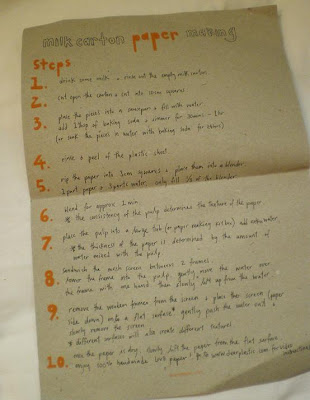 milk carton paper making
steps
1. drink some milk & rinse out the empty milk carton.
2. cut open the carton & cut into 10cm squares
3. place the pieces into a saucepan & fill with water
add 1 tbsp of baking soda & simmer for 30mins - 1hr
(or soak the pieces in water with baking soda for
4. rinse & peel of the plastic sheet
5. rip the paper into 1cm squares & place them into a blender.
1 part paper & 3 parts water. only fill of the blender
6. blend for approx 1 min.
* the consistency of the pulp determines the texture of the paper
7. place the pulp into a large tub (or paper making) add extra water
* the thickness of the paper is determined by the amount of
water mixed with the pulp
8. sandwich the mesh screen between 2 frames.
the frame into the pulp, gently move the water over
the frame with one hand. then slowly lift up from the water.
9. remove the wooden frames from the screen & place the screen (paper
side down) onto a flat surface* gently push the water out &
slowly remove the screen
* different surfaces will also create different textures
10. once the paper is dry, slowly lift the paper from the flat surface.
enjoy handmade paper! go to for video
instructions